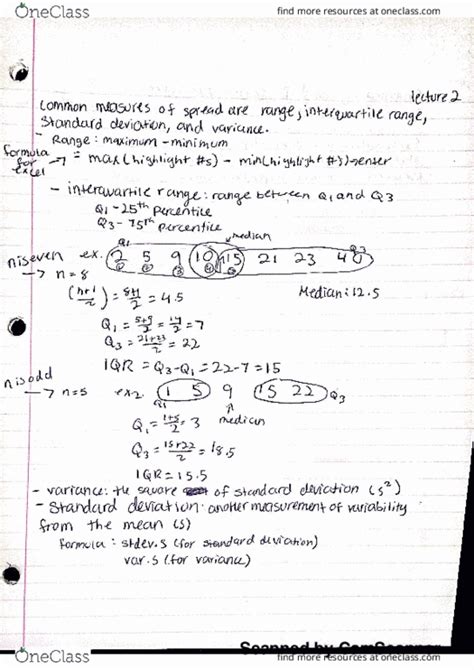 OneClass
find more resources at oneclass.com
lecture 2
Common measures of spread are range, interquartile range,
Standard deviation, and variance.
- Range: maximum - minimum
formula for excel → = max(highlight #s) - min(highlight #s) → enter
- interquartile range: range between Q1 and Q3
Q1 - 25th percentile
Q3 - 75th percentile
Q1 median Q3
n is even ex. 2 5 9 10 15 21 23 40
→ n=8
(n+1/2) = 8+1/2 = 4.5
Median: 12.5
Q1 = 5+9/2 = 14/2 = 7
Q3 = 21+23/2 = 22
IQR = Q3-Q1 = 22-7 = 15
n is odd
→ n=5 ex2 1 5 9 15 22 Q3
Q1 median
Q1 = 1+5/2 = 3
Q3 = 15+22/2 = 18.5
IQR = 15.5
- variance: the square of standard deviation (s²)
- Standard deviation: another measurement of variability
from the mean (s)
formula: stdev.s (for standard deviation)
var.s (for variance)
Scanned by CamScanner
OneClass
find more resources at oneclass.com